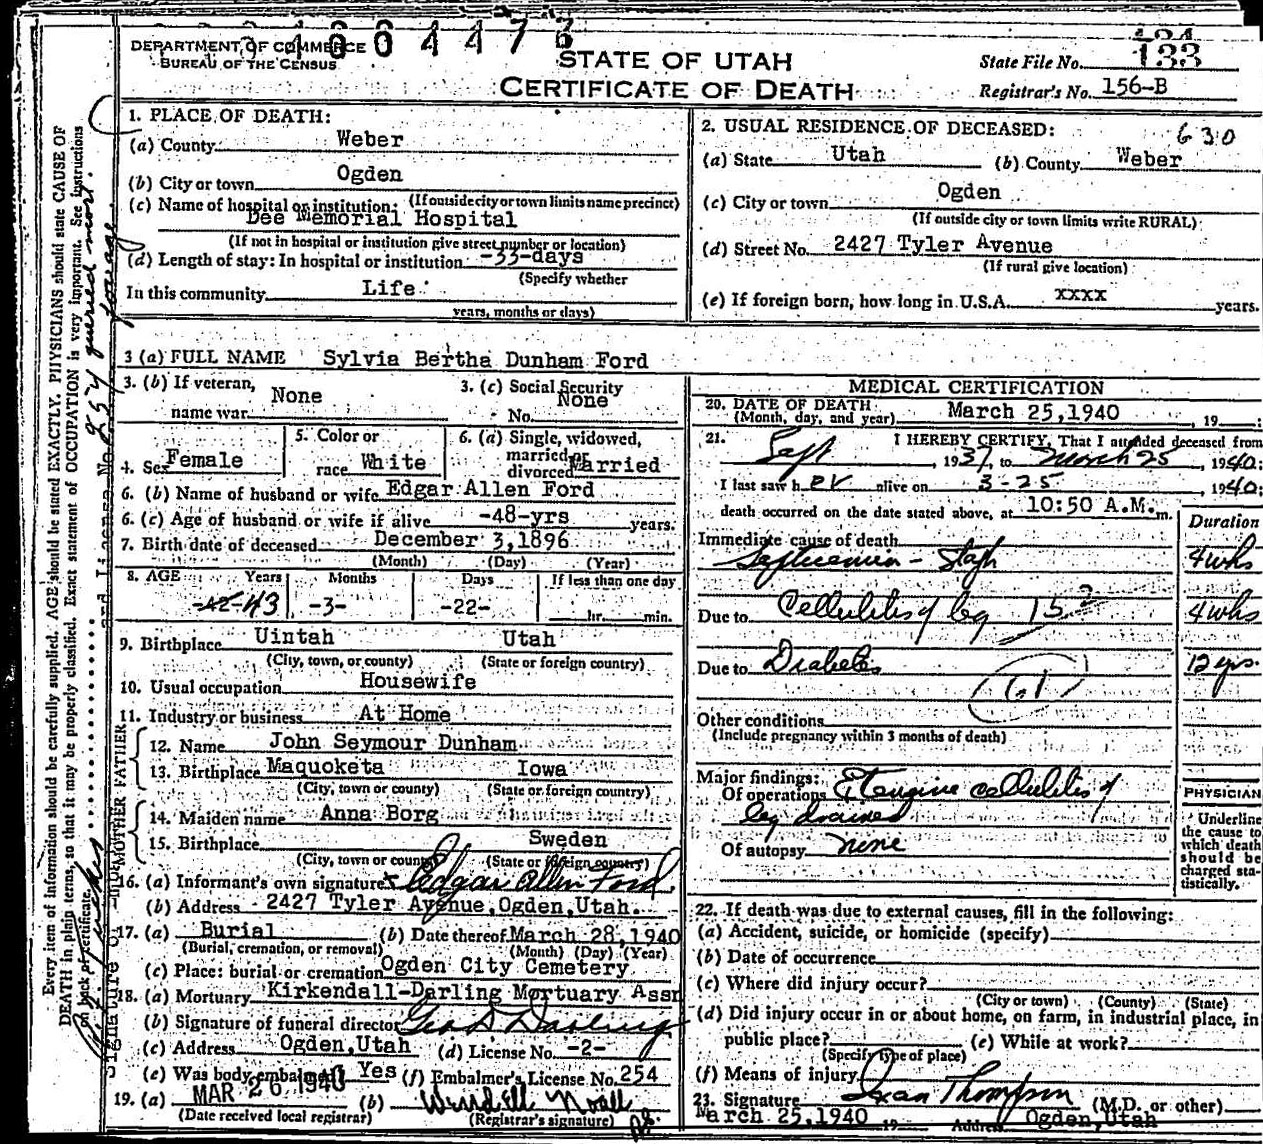 1664476
DEPARTMENT OF COMMERCE
BUREAU OF THE CENSUS
STATE OF UTAH
CERTIFICATE OF DEATH
State File No. 133
Registrar's No. 156-B
1. PLACE OF DEATH:
(a) County Weber
(b) City or town Ogden
(If outside city or town limits name precinct)
(c) Name of hospital or institution:
Dee Memorial Hospital
(If not in hospital or institution give street number or location)
(d) Length of stay: In hospital or institution -33-days
(Specify whether
In this community Life
years, months or days)
2. USUAL RESIDENCE OF DECEASED: 630
(a) State Utah (b) County Weber
(c) City or town Ogden
(If outside city or town limits write RURAL)
(d) Street No. 2427 Tyler Avenue
(If rural give location)
(e) If foreign born, how long in U.S.A. xxxx years.
3 (a) FULL NAME Sylvia Bertha Dunham Ford
3. (b) If veteran, name war None
3. (c) Social Security No. None
4. Sex Female
5. Color or race White
6. (a) Single, widowed, married or divorced Married
6. (b) Name of husband or wife Edgar Allen Ford
6. (c) Age of husband or wife if alive -48-yrs years.
7. Birth date of deceased December 3, 1896
(Month) (Day) (Year)
8. AGE Years Months Days If less than one day
-42- 43 -3- -22- hr. min.
9. Birthplace Uintah Utah
(City, town, or county) (State or foreign country)
10. Usual occupation Housewife
11. Industry or business At Home
FATHER
12. Name John Seymour Dunham
13. Birthplace Maquoketa Iowa
(City, town, or county) (State or foreign country)
MOTHER
14. Maiden name Anna Borg
15. Birthplace Sweden
(City, town or county) (State or foreign country)
16. (a) Informant's own signature x Edgar Allen Ford
(b) Address 2427 Tyler Avenue, Ogden, Utah.
17. (a) Burial (b) Date thereof March 28, 1940
(Burial, cremation, or removal) (Month) (Day) (Year)
(c) Place: burial or cremation Ogden City Cemetery
18. (a) Mortuary Kirkendall-Darling Mortuary Assn
(b) Signature of funeral director Geo S Darling
(c) Address Ogden, Utah (d) License No. -2-
(e) Was body embalmed Yes (f) Embalmer's License No. 254
19. (a) MAR 26 1940 (b) Wendell Noall
(Date received local registrar) (Registrar's signature)
MEDICAL CERTIFICATION
20. DATE OF DEATH March 25, 1940, 19
(Month, day, and year)
21. I HEREBY CERTIFY, That I attended deceased from
Sept, 1937, to March 25, 1940;
I last saw her alive on 3-25, 1940;
death occurred on the date stated above, at 10:50 A.M. m.
Duration
Immediate cause of death
Septicemia - Staph 4 wks
Due to Cellulitis of leg 152 4 wks
Due to Diabetes 12 yrs.
61
Other conditions
(Include pregnancy within 3 months of death)
Major findings:
Of operations Extensive cellulitis of
leg drained
Of autopsy none
PHYSICIAN
Underline
the cause to
which death
should be
charged sta-
tistically.
22. If death was due to external causes, fill in the following:
(a) Accident, suicide, or homicide (specify)
(b) Date of occurrence
(c) Where did injury occur?
(City or town) (County) (State)
(d) Did injury occur in or about home, on farm, in industrial place, in
public place? (e) While at work?
(Specify type of place)
(f) Means of injury
23. Signature Ivan Thompson (M.D. or other)
March 25, 1940 19 Address Ogden, Utah
Every item of information should be carefully supplied. AGE should be stated EXACTLY. PHYSICIANS should state CAUSE OF
DEATH in plain terms, so that it may be properly classified. Exact statement of OCCUPATION is very important. See instructions
on back of certificate.